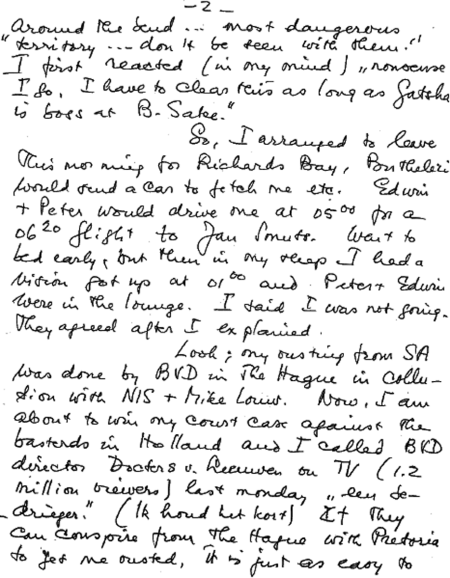 - 2 -
Around the bend ... most dangerous
"territory ... don't be seen with them."
I first reacted (in my mind) „nonsense
I go, I have to clear this as long as Gatsha
is boss at B-Sake."
So, I arranged to leave
This morning for Richards Bay,
would send a car to fetch me etc. Edwin
+ Peter would drive me at 05⁰⁰ for a
06²⁰ flight to Jan Smuts. Went to
bed early, but then in my sleep I had a
vision got up at 01⁰⁰ and Peter + Edwin
were in the lounge. I said I was not going.
They agreed after I explained.
Look; my ousting from SA
was done by BVD in The Hague in collu-
sion with NIS + Mike Louw. Now, I am
about to win my court case against the
basterds in Holland and I called BVD
director Docters v. Leeuwen on TV (1.2
million viewers) last monday „een be-
drieger." (Ik houd het kort) If They
can conspire from The Hague with Pretoria
to get me ousted, it is just as easy to